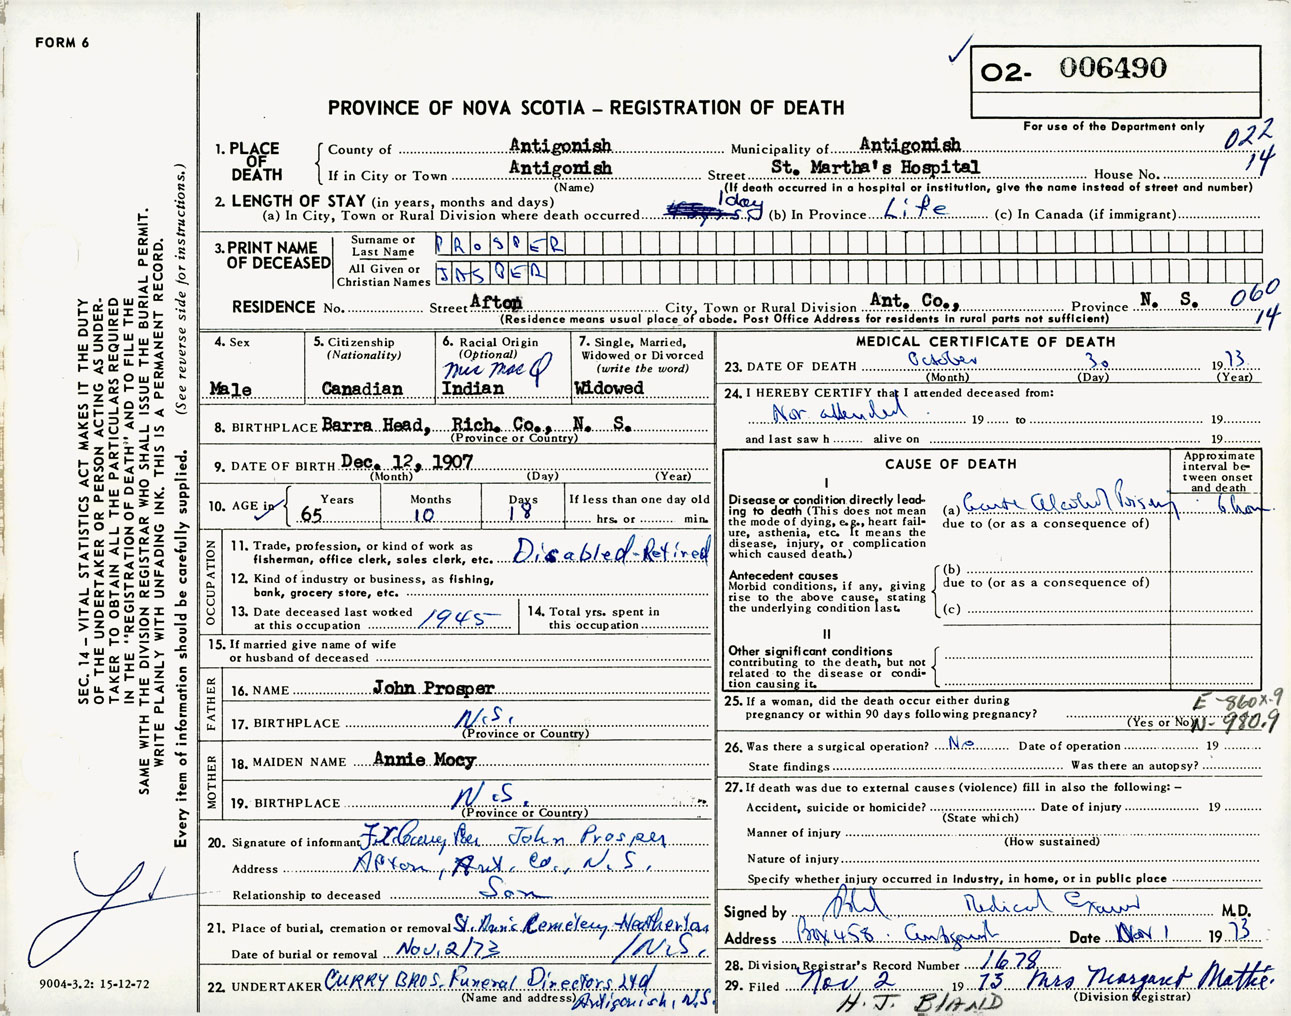 FORM 6
02- 006490
PROVINCE OF NOVA SCOTIA – REGISTRATION OF DEATH
For use of the Department only
022
14
1. PLACE OF DEATH
County of Antigonish Municipality of Antigonish
If in City or Town Antigonish Street St. Martha's Hospital House No.
(Name) (If death occurred in a hospital or institution, give the name instead of street and number)
2. LENGTH OF STAY (in years, months and days)
(a) In City, Town or Rural Division where death occurred 1 day (b) In Province Life (c) In Canada (if immigrant)
3. PRINT NAME OF DECEASED
Surname or Last Name PROSPER
All Given or Christian Names JASPER
RESIDENCE No. Street Afton City, Town or Rural Division Ant. Co., Province N. S.
(Residence means usual place of abode. Post Office Address for residents in rural parts not sufficient)
060
14
4. Sex
Male
5. Citizenship
(Nationality)
Canadian
6. Racial Origin
(Optional)
Mic Mac
Indian
7. Single, Married,
Widowed or Divorced
(write the word)
Widowed
8. BIRTHPLACE Barra Head, Rich. Co., N. S.
(Province or Country)
9. DATE OF BIRTH Dec. 12, 1907
(Month) (Day) (Year)
10. AGE in
Years Months Days If less than one day old
65 10 18 hrs. or min.
OCCUPATION
11. Trade, profession, or kind of work as
fisherman, office clerk, sales clerk, etc. Disabled-Retired
12. Kind of industry or business, as fishing,
bank, grocery store, etc.
13. Date deceased last worked
at this occupation 1945
14. Total yrs. spent in
this occupation
15. If married give name of wife
or husband of deceased
FATHER
16. NAME John Prosper
17. BIRTHPLACE N.S.
(Province or Country)
MOTHER
18. MAIDEN NAME Annie Mocy
19. BIRTHPLACE N.S.
(Province or Country)
20. Signature of informant John Prosper
Address Afton, Ant. Co., N.S.
Relationship to deceased Son
21. Place of burial, cremation or removal Cemetery-Heatherton
Date of burial or removal Nov. 2/73 N.S.
22. UNDERTAKER CURRY BROS. Funeral Directors Ltd
(Name and address) Antigonish, N.S.
MEDICAL CERTIFICATE OF DEATH
23. DATE OF DEATH October 30 1973
(Month) (Day) (Year)
24. I HEREBY CERTIFY that I attended deceased from:
Not attended 19 to 19
and last saw h alive on 19
CAUSE OF DEATH
Approximate
interval be-
tween onset
and death
I
Disease or condition directly lead-
ing to death (This does not mean
the mode of dying, e.g., heart fail-
ure, asthenia, etc. It means the
disease, injury, or complication
which caused death.)
(a) Acute Alcohol Poisoning 6 hours
due to (or as a consequence of)
Antecedent causes
Morbid conditions, if any, giving
rise to the above cause, stating
the underlying condition last.
(b)
due to (or as a consequence of)
(c)
II
Other significant conditions
contributing to the death, but not
related to the disease or condi-
tion causing it.
25. If a woman, did the death occur either during
pregnancy or within 90 days following pregnancy?
(Yes or No)
E-860x.9
N-980.9
26. Was there a surgical operation? No Date of operation 19
State findings Was there an autopsy?
27. If death was due to external causes (violence) fill in also the following: –
Accident, suicide or homicide? Date of injury 19
(State which)
Manner of injury
(How sustained)
Nature of injury
Specify whether injury occurred in Industry, in home, or in public place
Signed by Medical Examiner M.D.
Address Box 458 Antigonish Date Nov 1 1973
28. Division Registrar's Record Number 1678
29. Filed Nov 2 1973 Mrs Margaret Mattie
(Division Registrar)
H.J. BLAND
SEC. 14 – VITAL STATISTICS ACT MAKES IT THE DUTY
OF THE UNDERTAKER OR PERSON ACTING AS UNDER-
TAKER TO OBTAIN ALL THE PARTICULARS REQUIRED
IN THE "REGISTRATION OF DEATH" AND TO FILE THE
SAME WITH THE DIVISION REGISTRAR WHO SHALL ISSUE THE BURIAL PERMIT.
WRITE PLAINLY WITH UNFADING INK. THIS IS A PERMANENT RECORD.
Every item of information should be carefully supplied. (See reverse side for instructions.)
9004-3.2: 15-12-72